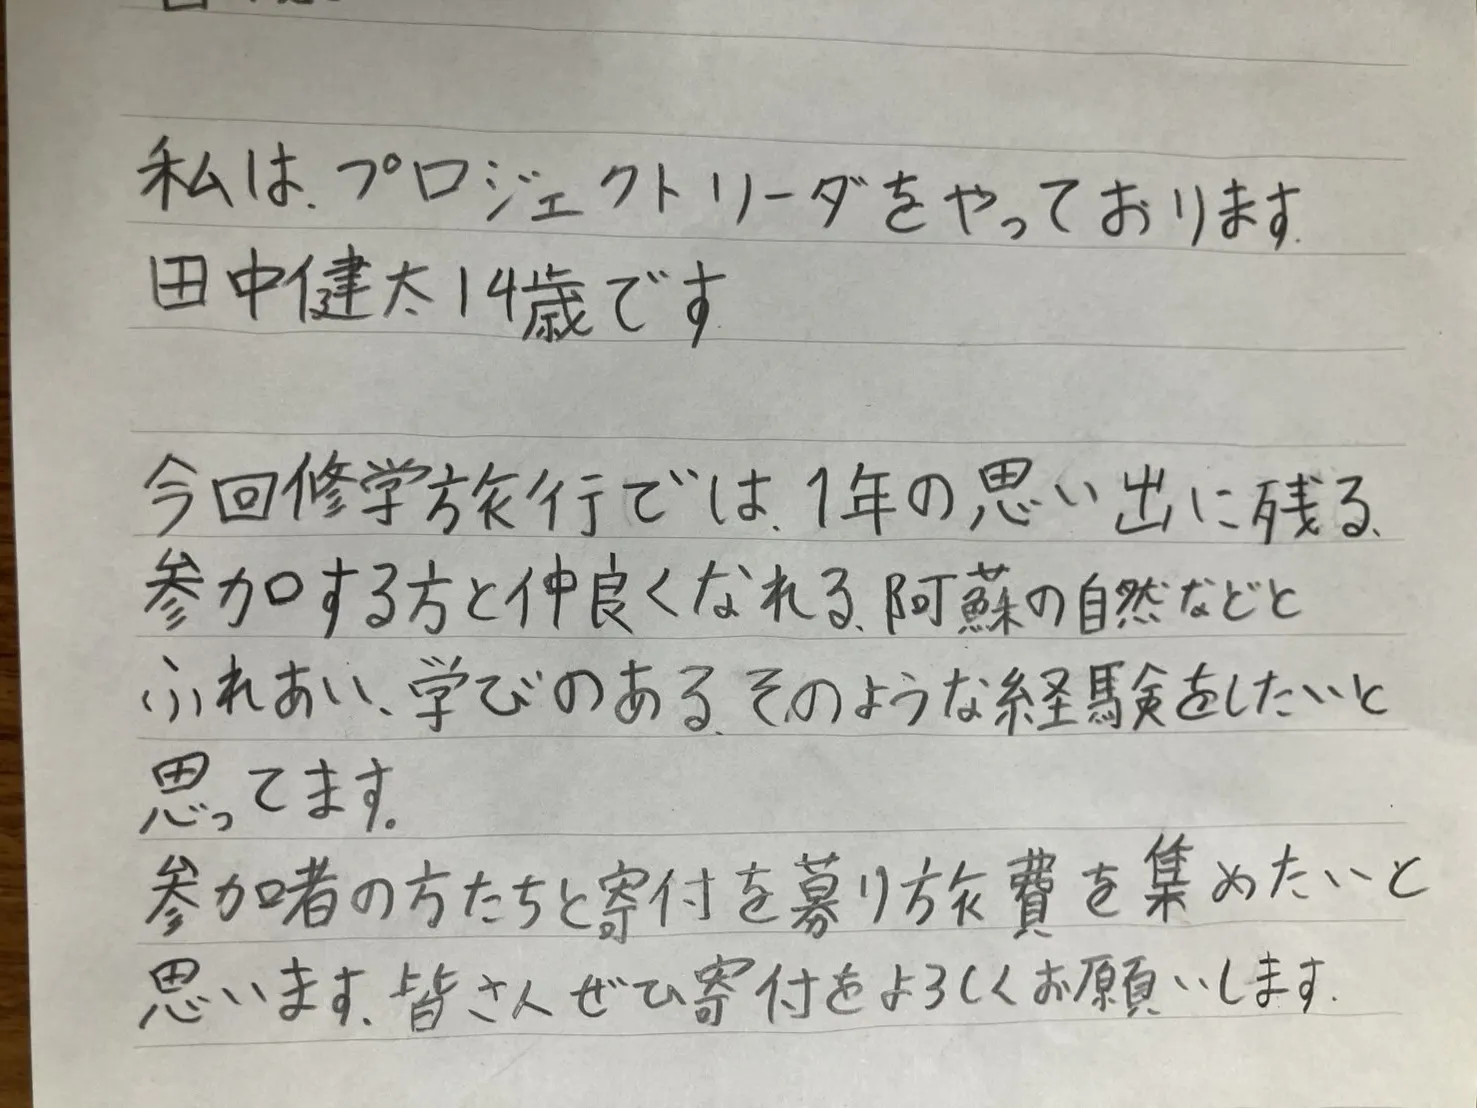 私は、プロジェクトリーダをやっております。
田中健太14歳です
今回修学旅行では、1年の思い出に残る、
参加する方と仲良くなれる、阿蘇の自然などと
ふれあい、学びのある、そのような経験をしたいと
思ってます。
参加者の方たちと寄付を募り旅費を集めたいと
思います、皆さんぜひ寄付をよろしくお願いします.